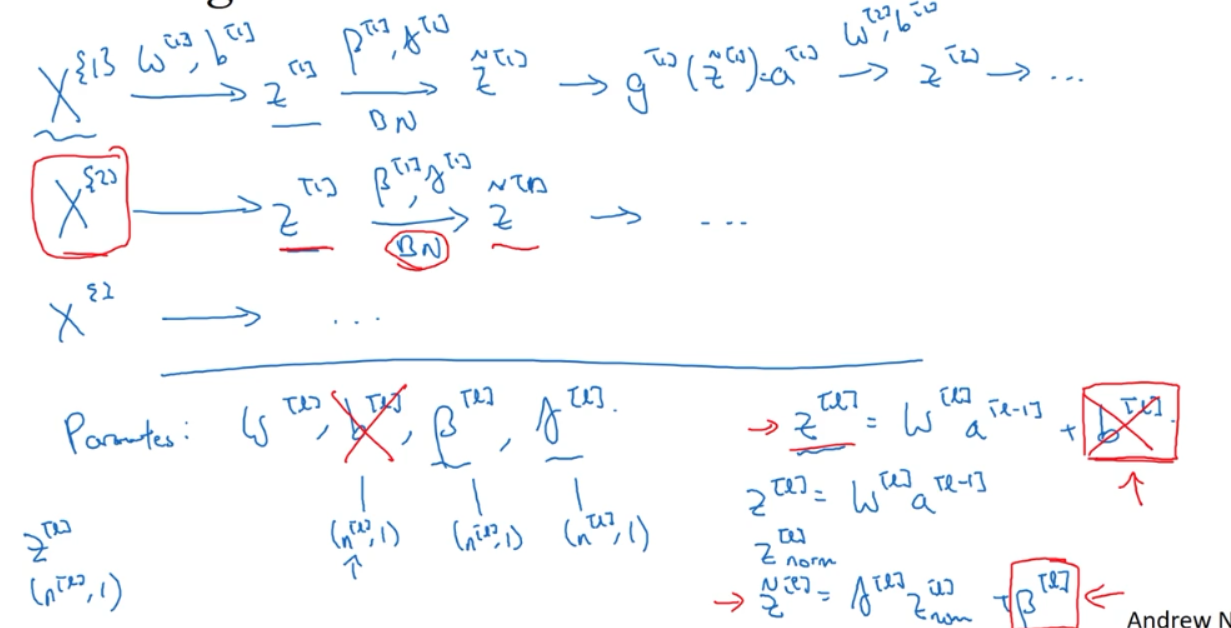 X^{1} W^[1], b^[1] → z^[1] β^[1], γ^[1] → BN z̃^[1] → g^[1](z̃^[1]) = a^[1] → W^[2], b^[2] z^[2] → ...
X^{2} → z^[1] β^[1], γ^[1] → BN z̃^[1] → ...
X^{} → ...
Parameters: W^[l], b^[l], β^[l], γ^[l].
(n^[l], 1) (n^[l], 1) (n^[l], 1)
z^[l]
(n^[l], 1)
→ z^[l] = W^[l] a^[l-1] + b^[l].
z^[l] = W^[l] a^[l-1]
z^[l]_norm
→ z̃^[l] = γ^[l] z^[l]_norm + β^[l] ←
Andrew N